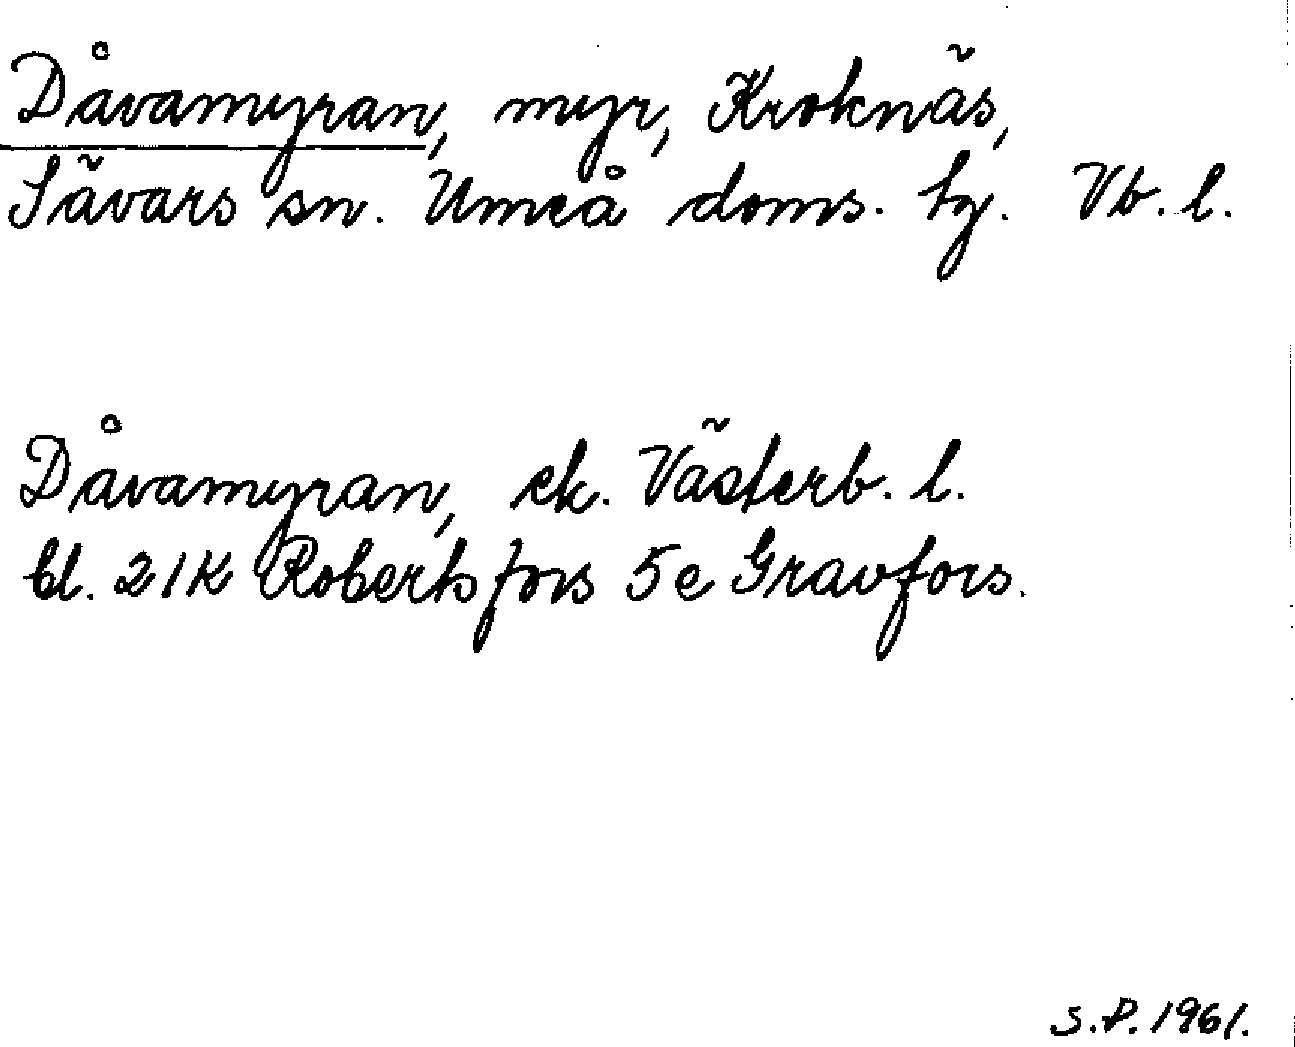 Dåvamyran, myr, Kroknäs,
Sävars sn. Umeå doms. tg. Vb. l.
Dåvamyran, ek. Västerb. l.
bl. 21K Robertsfors 5e Gravfors.
S.P. 1961.